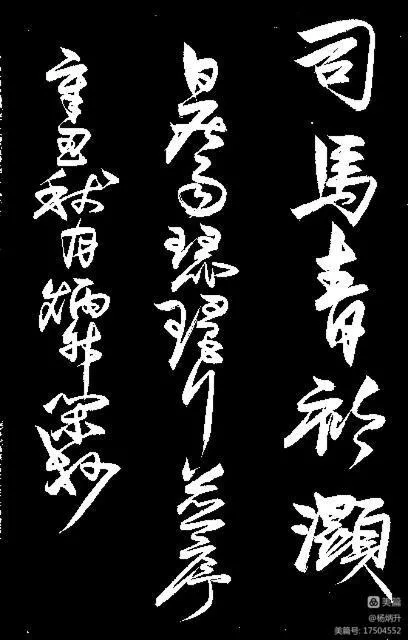 司馬青衫
白居易琵琶行並序
辛丑秋月炳升閑抄
美篇
@杨炳升
美篇号: 17504552